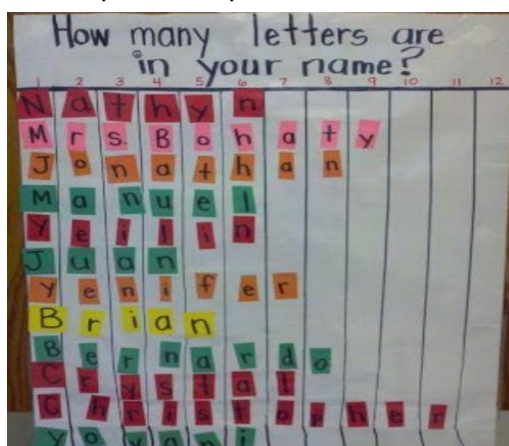 How many letters are
in your name?
1 2 3 4 5 6 7 8 9 10 11 12
Nathyn
Mrs. Bohaty
Jonathan
Manuel
Yeilin
Juan
Yenifer
Brian
Bernardo
Crystal
Christopher
Yovani